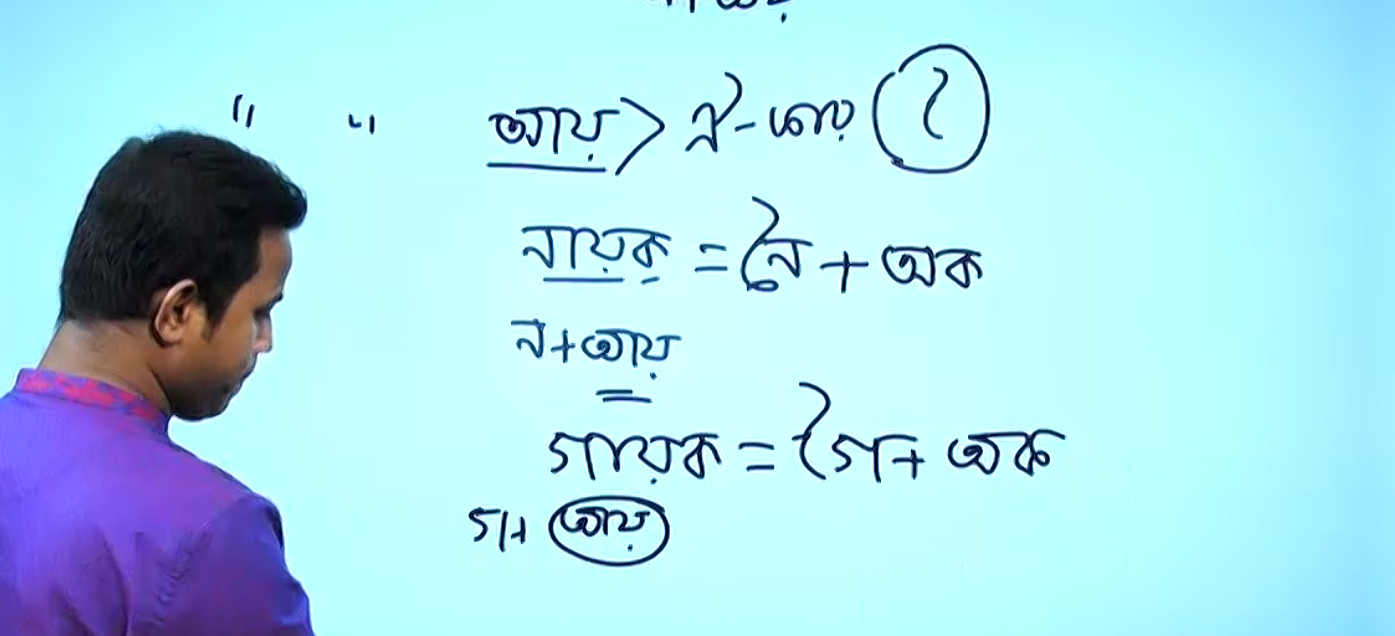 " " আয় > ঐ-কার (ৈ)
নায়ক = নৈ + অক
ন+আয়
গায়ক = গৈ + অক
গ+ আয়